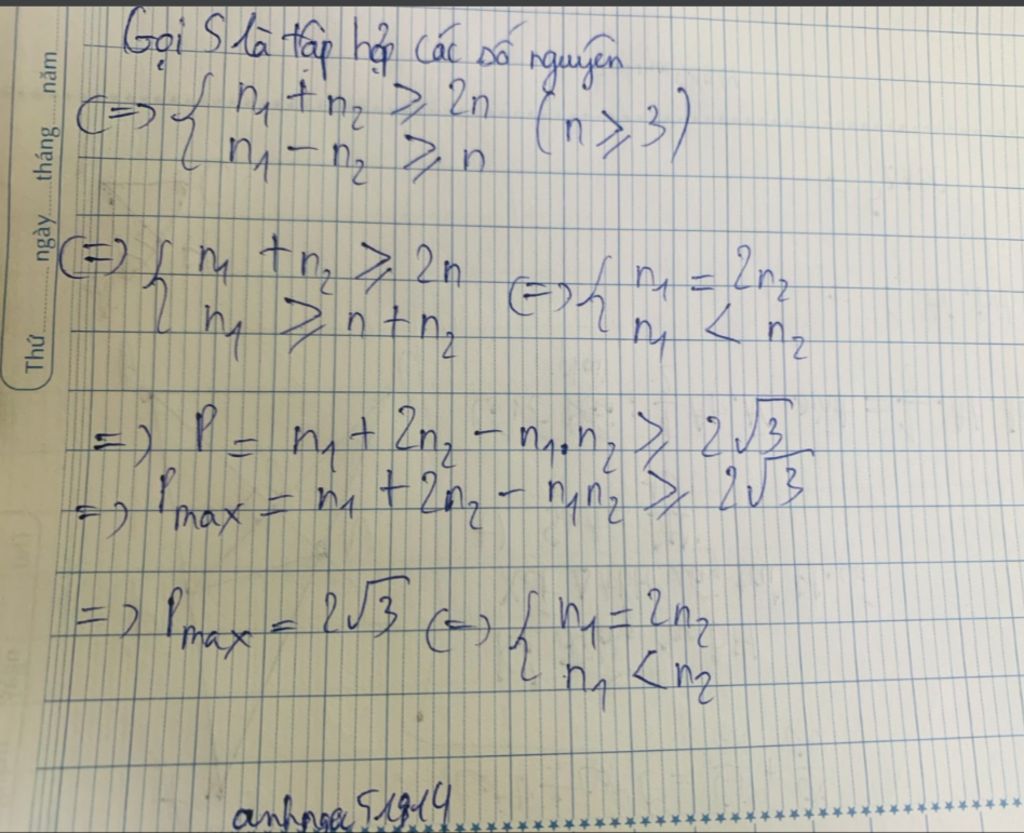 Thứ........ ngày ........ tháng ........ năm ........
Gọi S là tập hợp các số nguyên
(=) { n₁ + n₂ ⩾ 2n (n ⩾ 3)
n₁ - n₂ ⩾ n
(=) { n₁ + n₂ ⩾ 2n (=) { n₁ = 2n₂
n₁ ⩾ n + n₂ n₁ < n₂
=) P = n₁ + 2n₂ - n₁.n₂ ⩾ 2√3
=) Pmax = n₁ + 2n₂ - n₁n₂ ⩾ 2√3
=) Pmax = 2√3 (=) { n₁ = 2n₂
n₁ < n₂